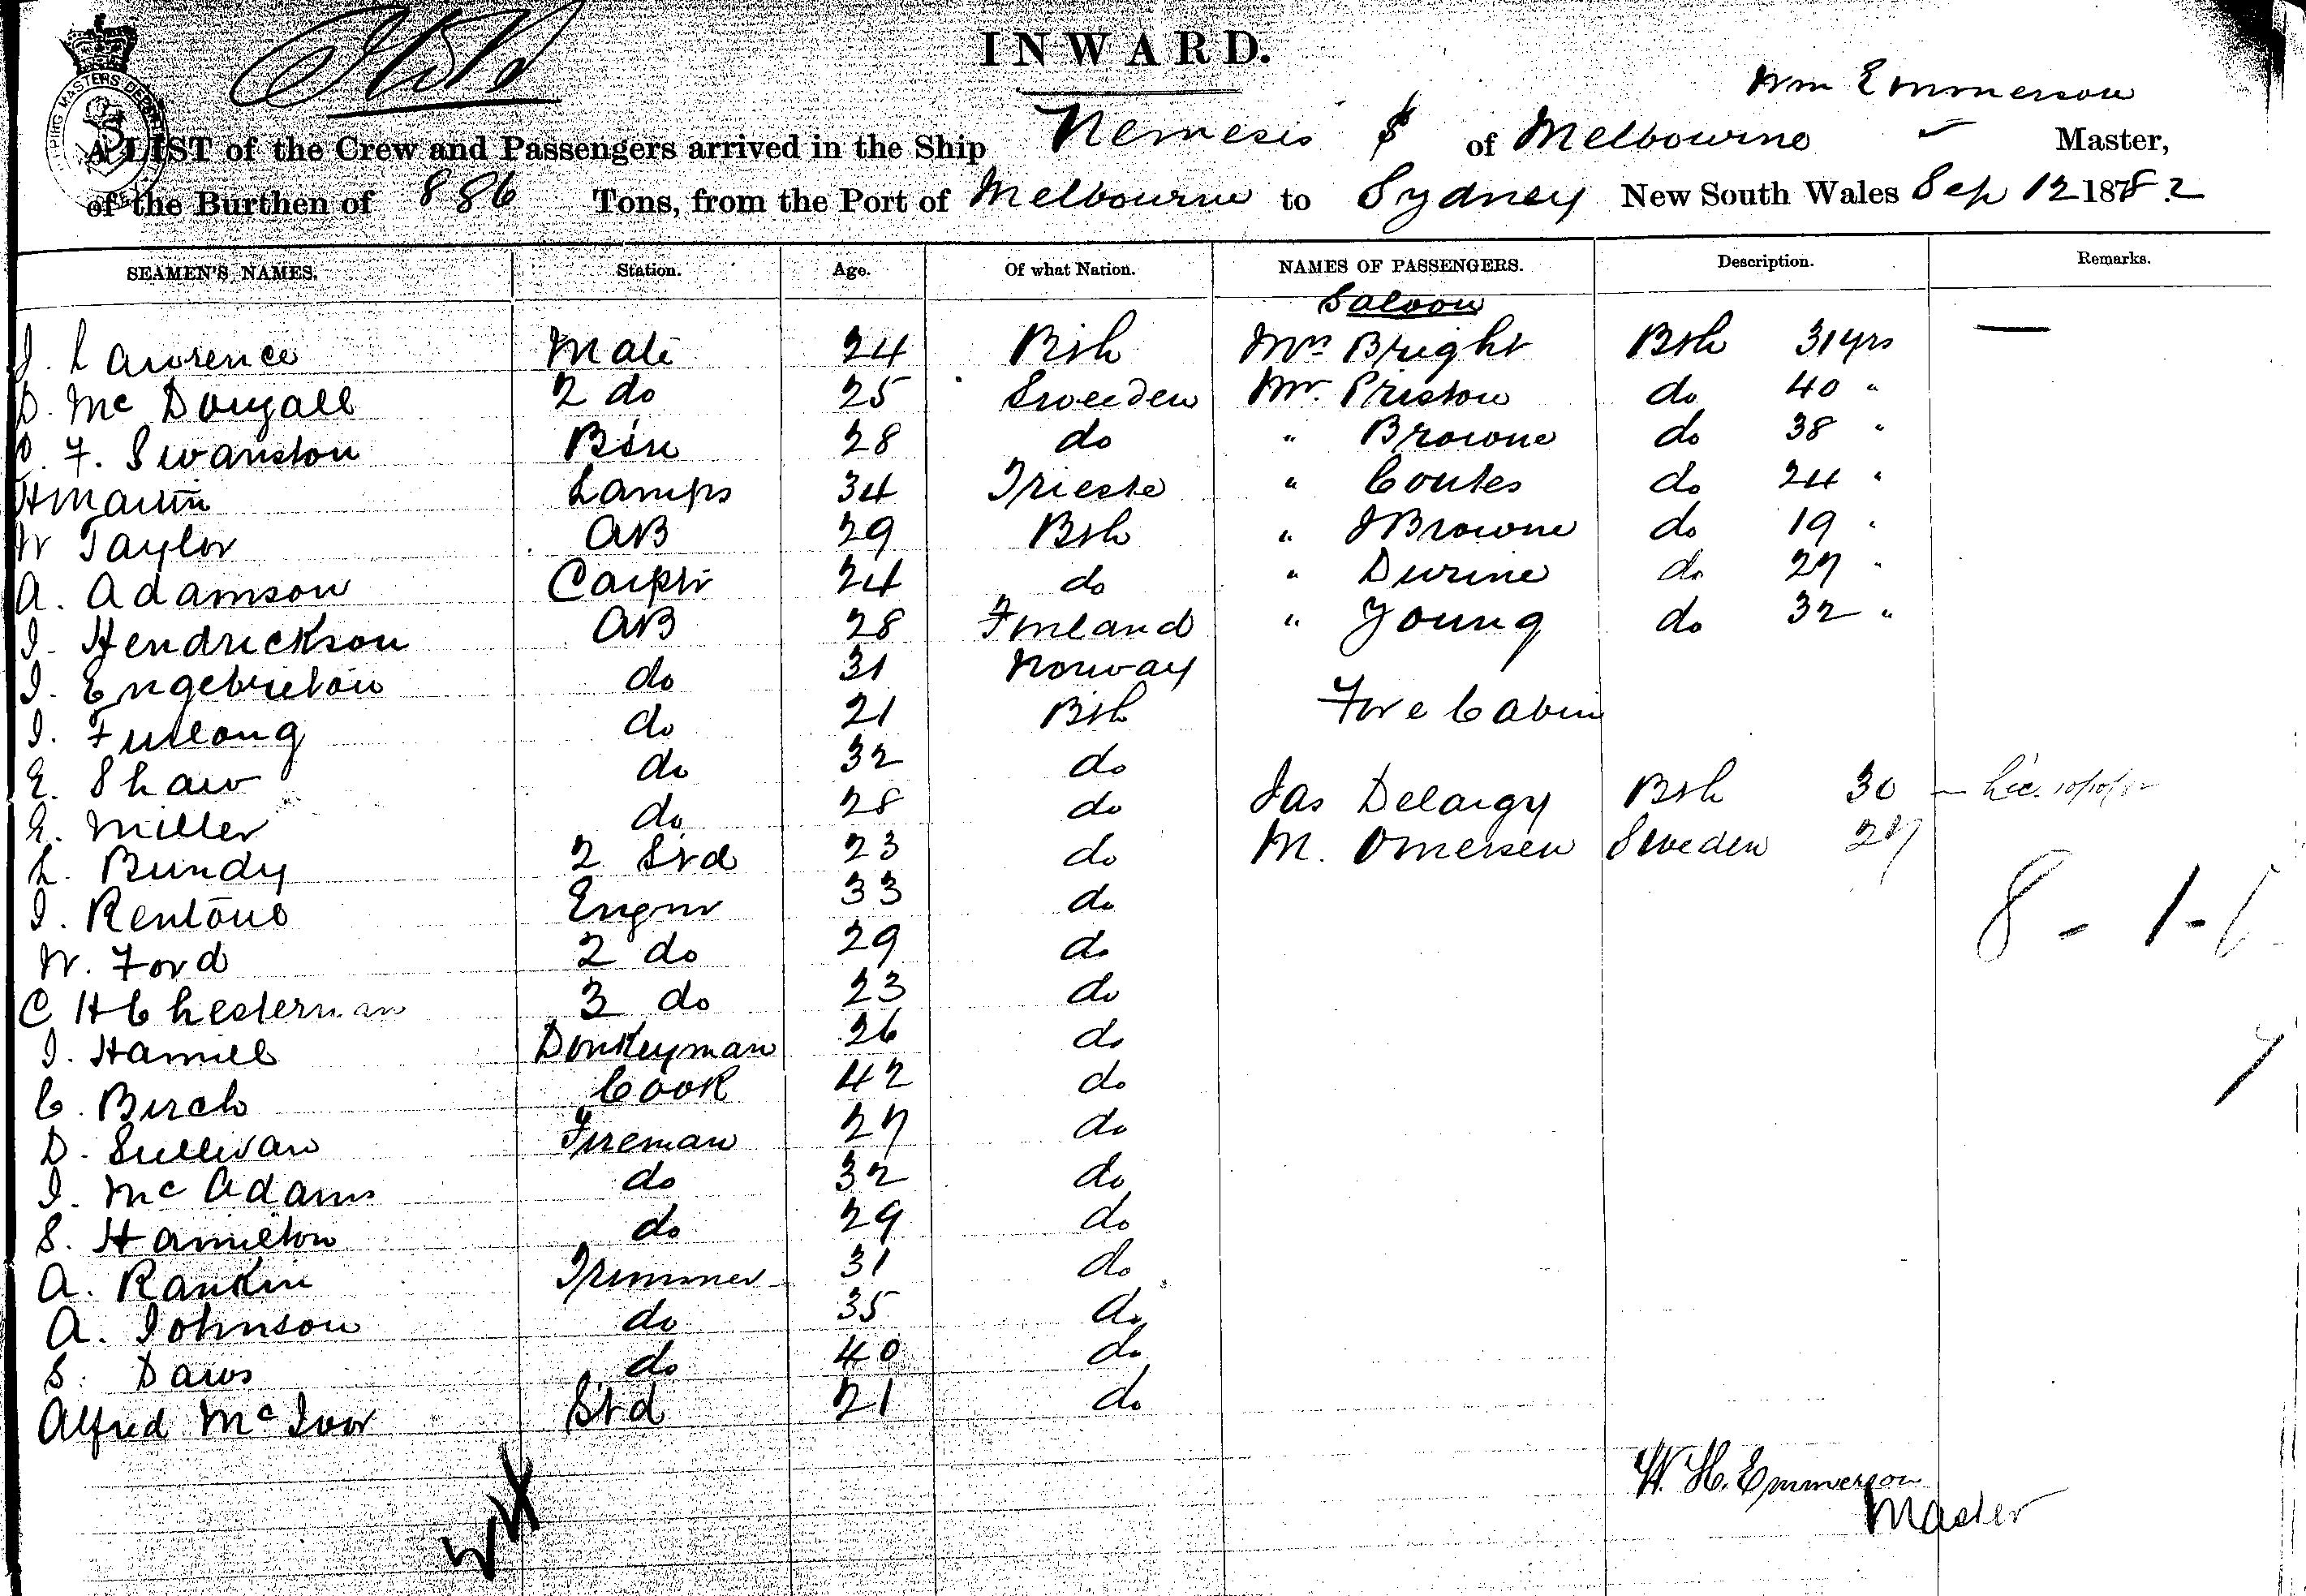 INWARD.
Wm Emmerson
A LIST of the Crew and Passengers arrived in the Ship Nemesis of Melbourne Master,
of the Burthen of 886 Tons, from the Port of Melbourne to Sydney New South Wales Sep 12 1882
SEAMEN'S NAMES. Station. Age. Of what Nation. NAMES OF PASSENGERS. Description. Remarks.
Saloon
J. Lawrence Mate 24 Bsh Mrs Bright Bsh 31 yrs —
D. Mc Dougall 2 do 25 Sweeden Mr. Preston do 40 "
F. Swanston 28 do " Browne do 38 "
H Martin Lamps 34 Trieste " Coutes do 24 "
W Taylor AB 29 Bsh " J Browne do 19 "
A. Adamson Carptr 24 do " Durine do 27 "
J. Hendrickson AB 28 Finland " Young do 32 "
J. Engebretson do 31 Norway
J. Furlong do 21 Bsh Fore Cabin
E. Shaw do 32 do
E. Miller do 28 do Jas Delargy Bsh 30
L. Bundy 2 Std 23 do M. Omersen Sweden 27
J. Rentone Engnr 33 do
W. Ford 2 do 29 do
C H Chesterman 3 do 23 do
J. Hamill Donkeyman 26 do
C. Birch Cook 42 do
D. Sullivan Fireman 27 do
J. Mc Adams do 32 do
S. Hamilton do 29 do
A. Rankin Trimmer 31 do
A. Johnson do 35 do
S. Daws do 40 do
Alfred Mc Ivor Std 21 do
W. H. Emmerson
Master